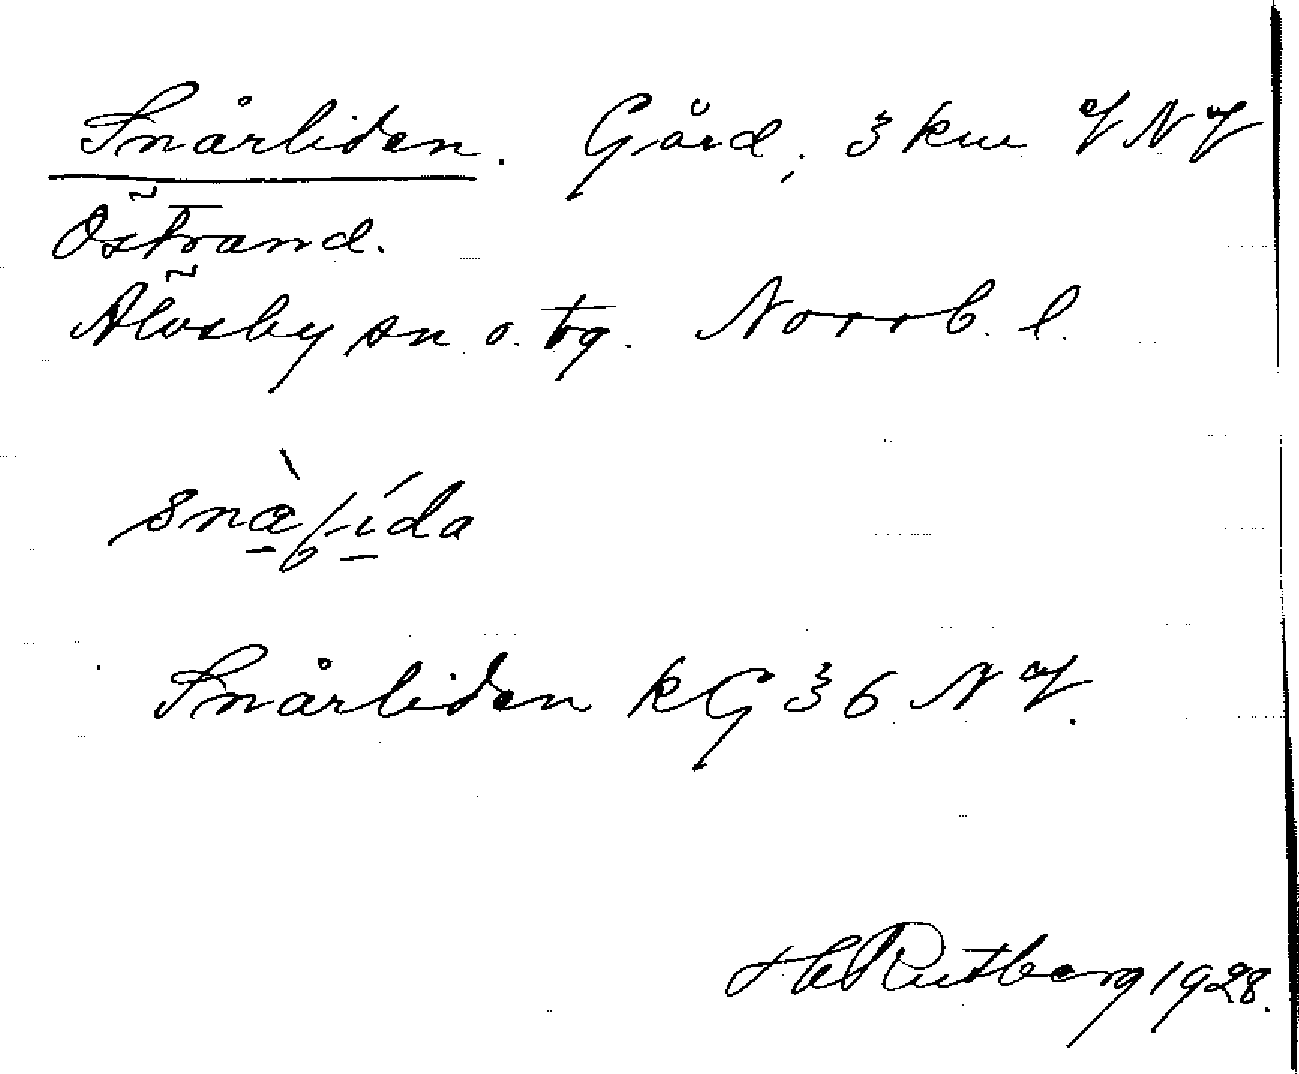 Snårliden. Gård, 3 km VNV
Östrand.
Älvsby sn o. tg. Norrb. l.
Snårliden kG 36 NV.
H Rutberg 1928.